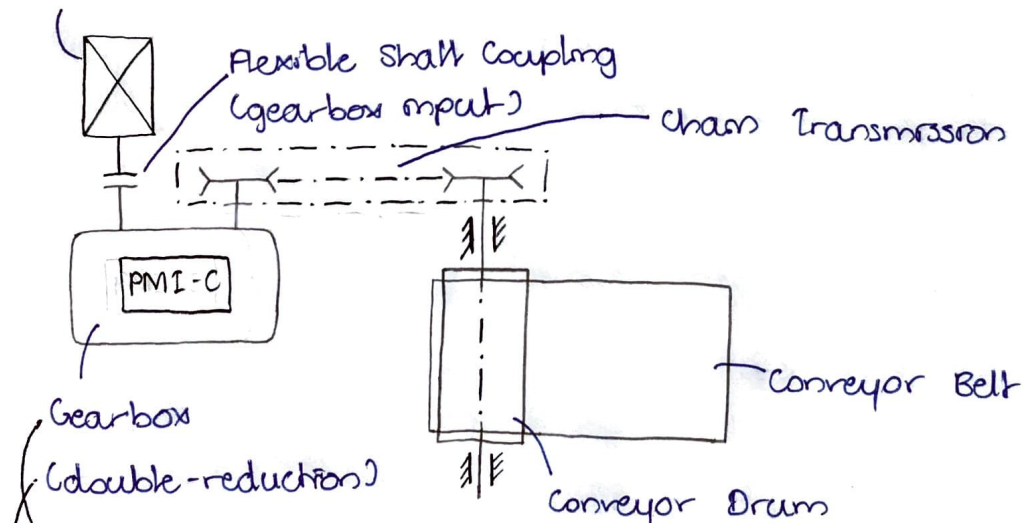 Flexible Shaft Coupling
(gearbox input)
Chain Transmission
PMI-C
Gearbox
(double-reduction)
Conveyor Belt
Conveyor Drum